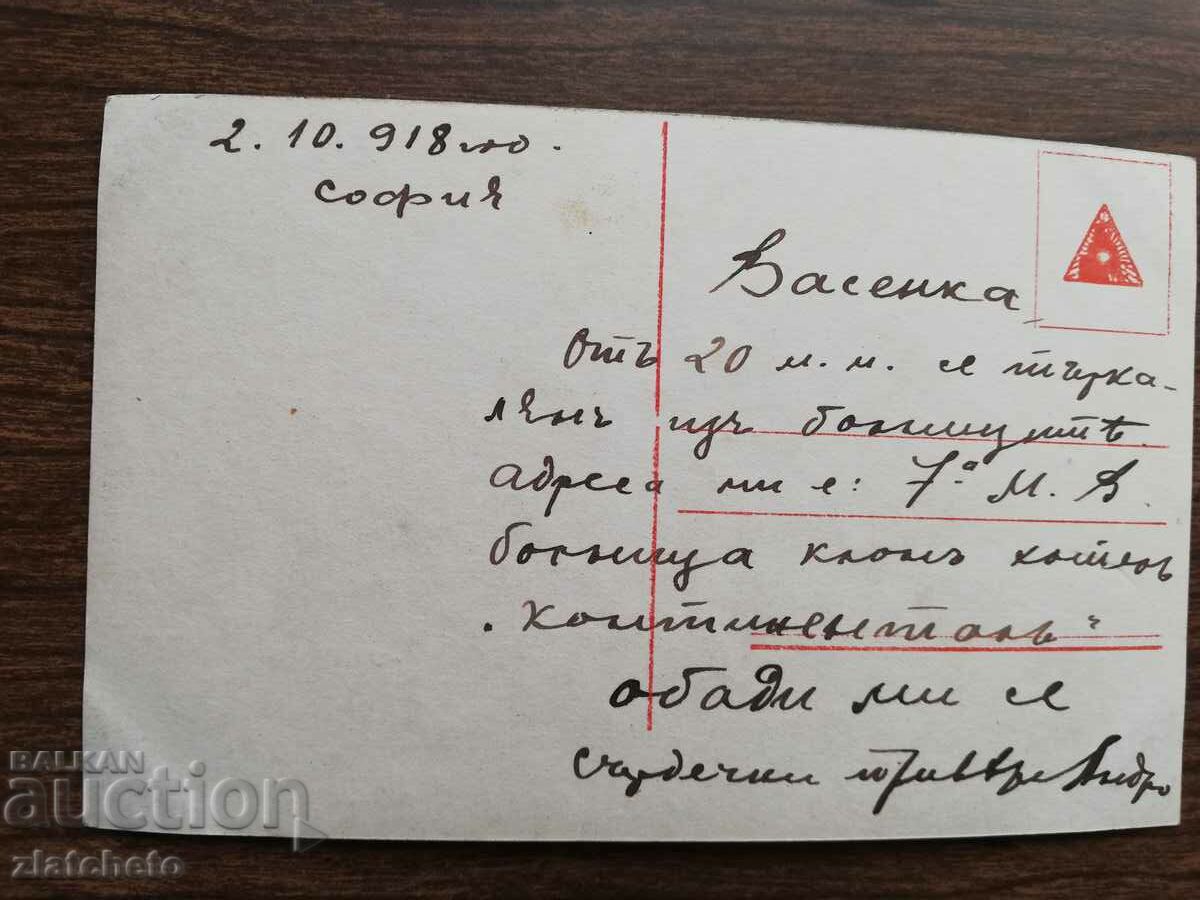 2. 10. 918 год.
София
Васенка
Отъ 20 м. м. се търка-
лямъ изъ болницитѣ.
адреса ми е: 7а М. В.
болница клонъ хотелъ
"Континенталъ"
обади ми се
сърдечни
BALKAN
auction
zlatcheto